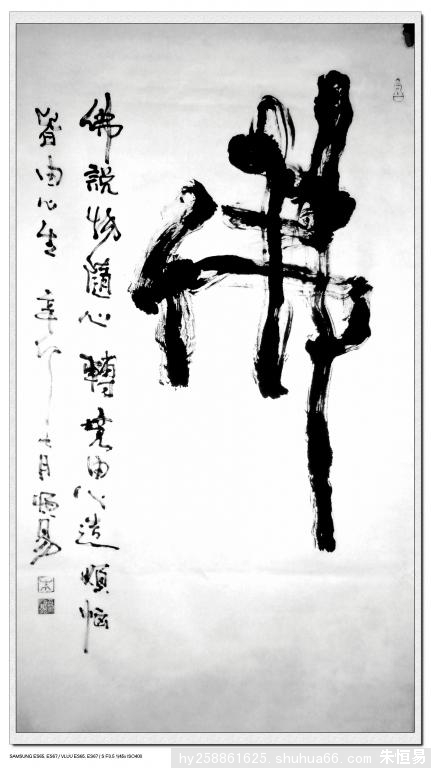 佛
佛說物隨心轉境由心造煩惱
皆由心生 辛卯七月恒易
SAMSUNG ES65, ES67 / VLUU ES65, ES67 ( S F3.5 1/45s ISO400
hy258861625.shuhua66.com 朱恒易